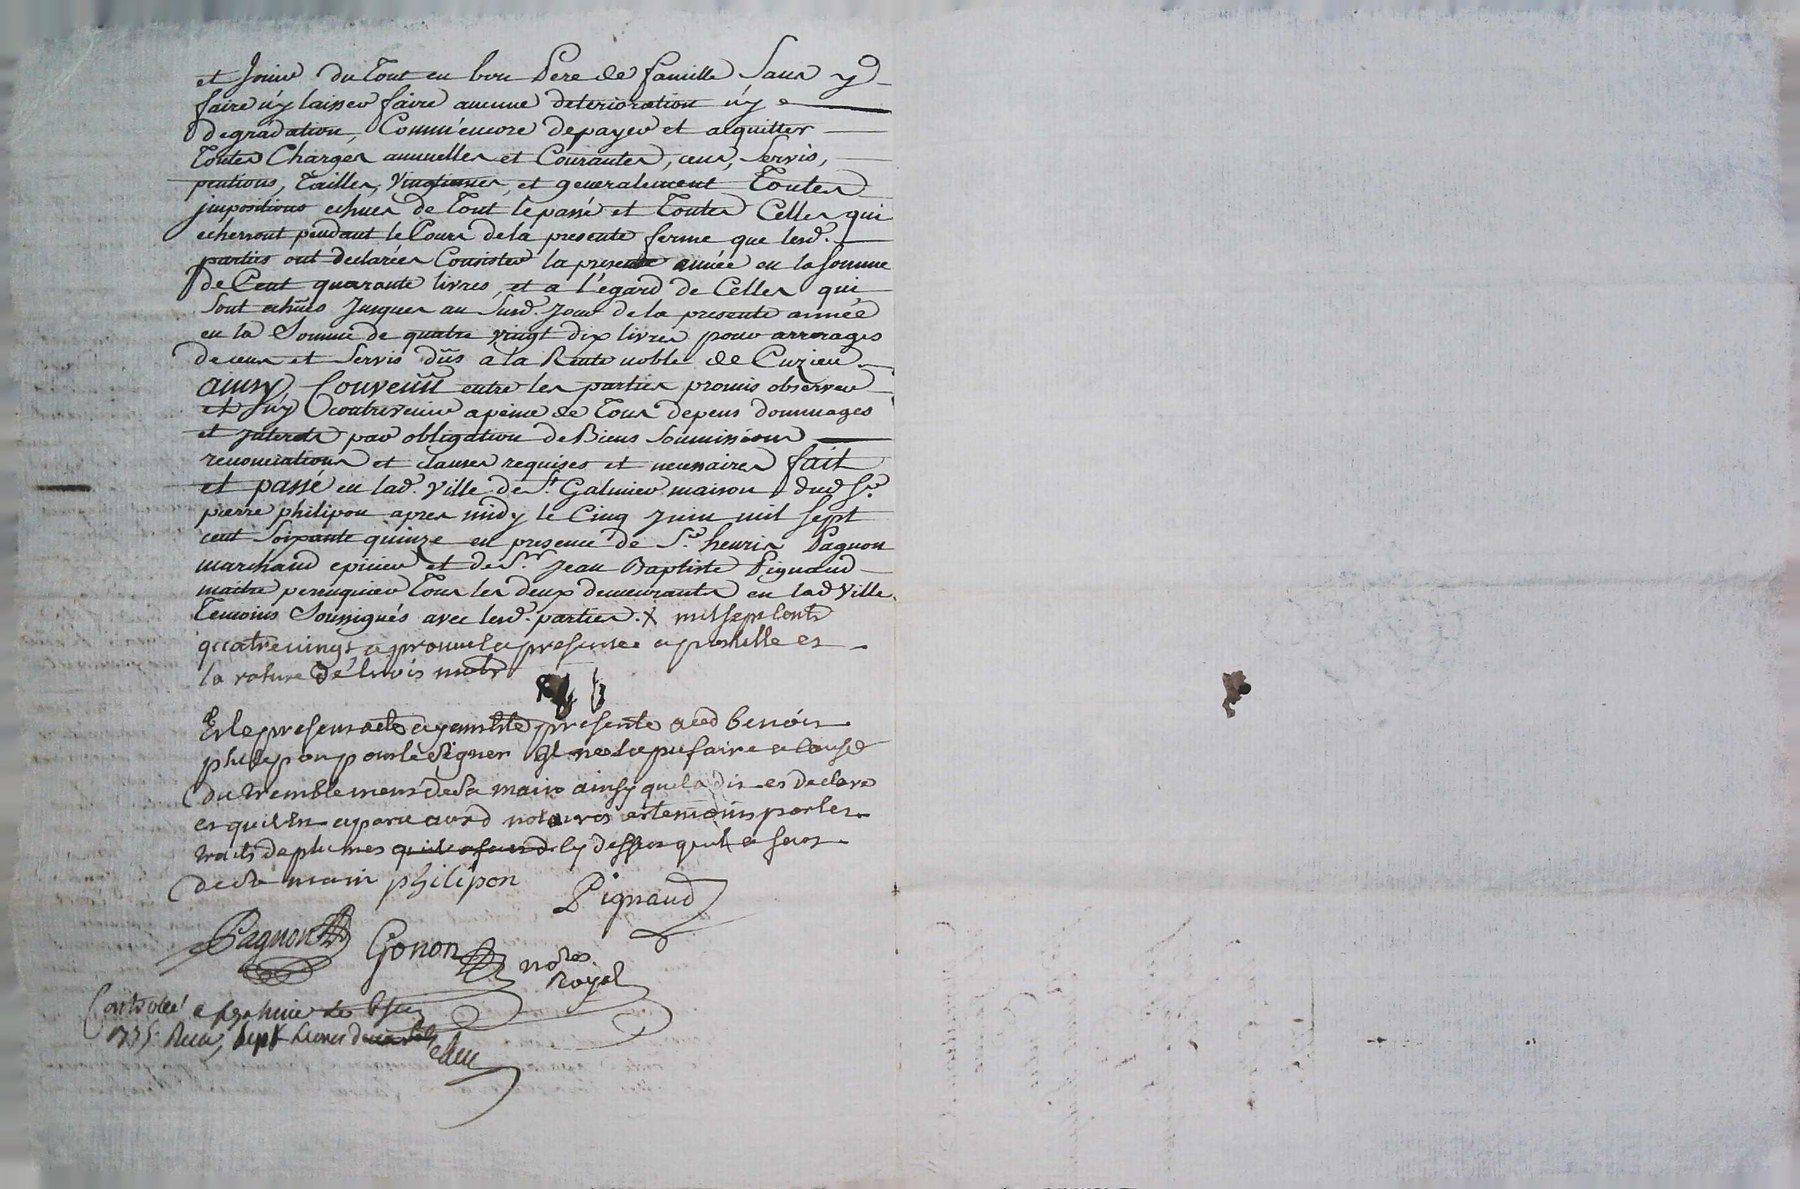 et Jouir du Tout en bon Pere de famille Sans y
faire n'y laisser faire aucune deterioration n'y
degradation, Comm'encore depayer et alquitter
Toutes Charges annuelles et Courantes, cens, Servis,
pentions, Tailles, Vingtiemes, et generalement Toutes
jmpositions echues de Tout lepassé et Toutes Celles qui
echerront pendant le Cours dela presente ferme que lesd.
parties ont declarées Consister la presente année en la Somme
de Cent quarante livres, et a l'egard de Celles qui
Sont echues Jusques au Susd. Jour dela presente année
en la Somme de quatre vingt dix livres pour arrerages
de cens et Servis dûs a la Rente noble de Cuzieu.
ainsy Convenû entre les parties promis observer
et n'y contrevenir apeine de Tous depens dommages
et Interets par obligation de Biens Soumissions
renonciations et clauses requises et necessaires fait
et passé en lad. Ville de St. Galmier maison dud Sr.
pierre philipon apres midy le Cinq Juin mil Sept
cent Soixante quinze en presence de Sr. henris Pagnon
marchand epicier et de Sr. Jean Baptiste Pignaud
maitre perruquier Tous les deux demeurants en lad Ville
Temoins Soussignés avec lesd. parties. X mil sept Cents
quatrevingt aprouvé la presente apostille et
la rature de trois mots
Et le present acte ayant été presenté aud benoit
philipon pour le Signer Il ne la pu faire a Cause
du tremblement de Sa main ainsy qu'il a dit et declaré
et qu'il En aparu aud notaires et temoins par les
traits de plumes cy dessus qu'il a fait
de sa main philipon
Pignaud
Pagnon Gonon nore
Royal
Controllé a St galmier le
1775 Recu Sept livres